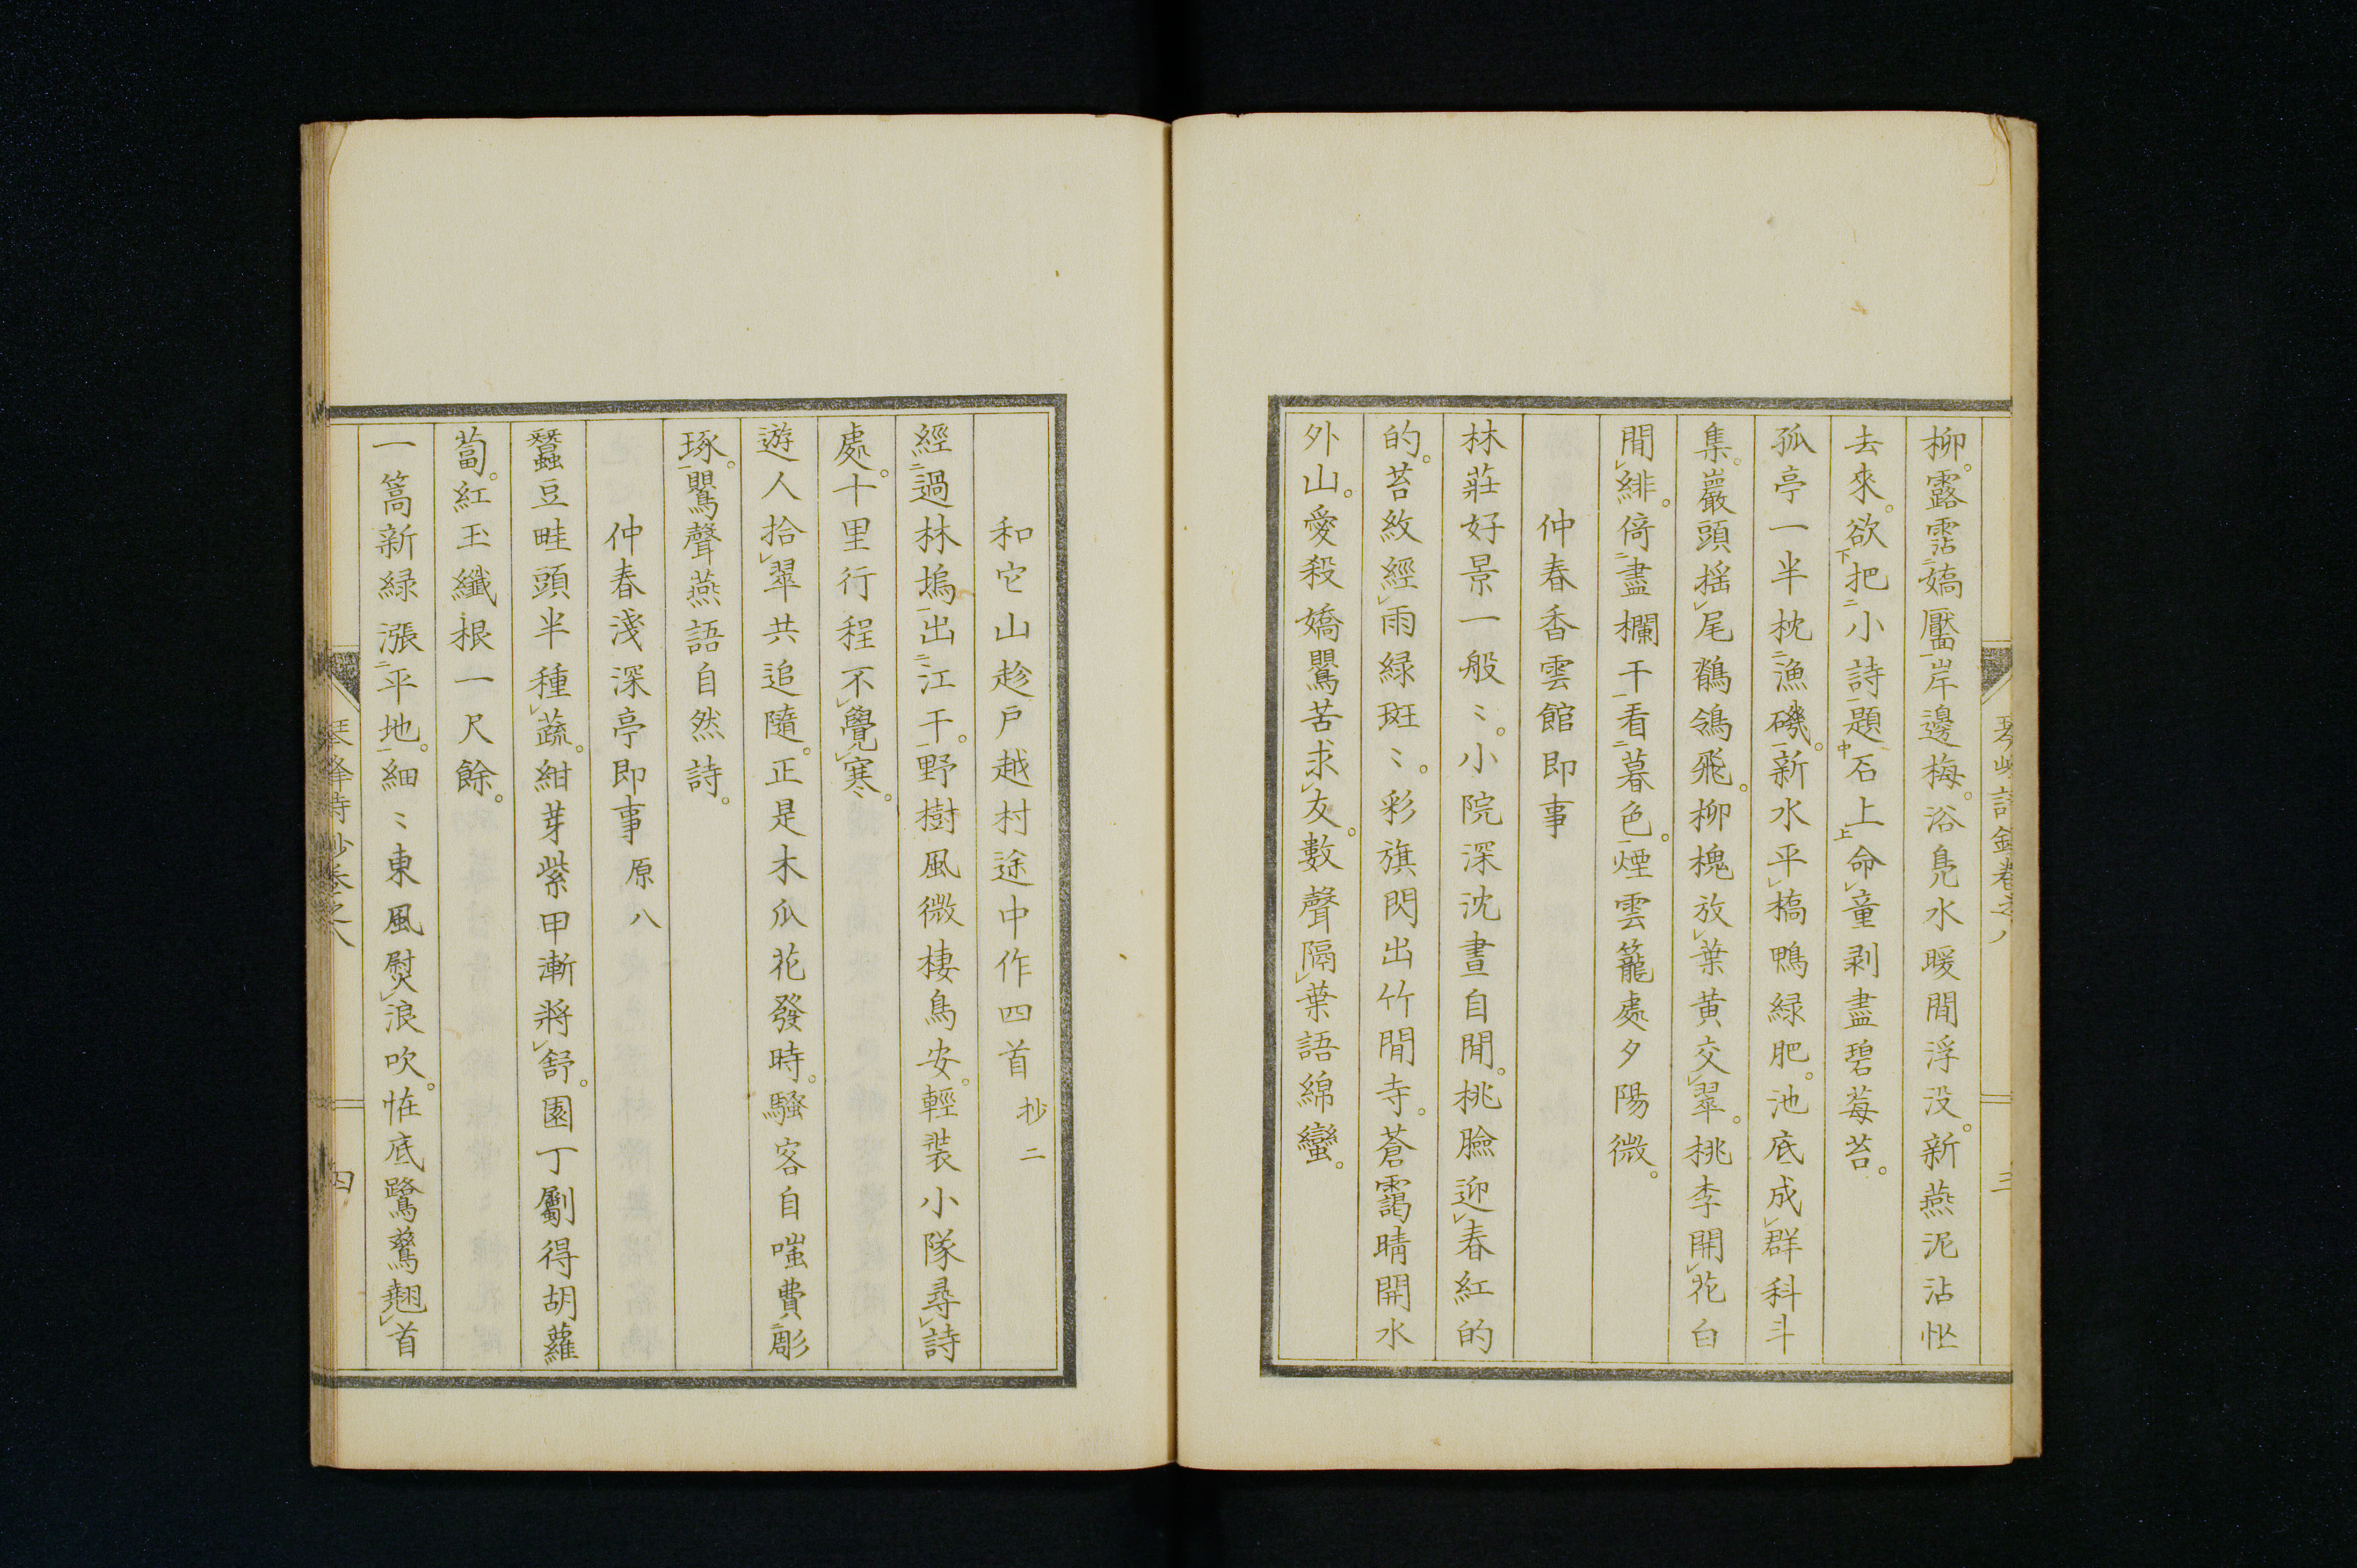 柳。露霑嬌靨岸邊梅。浴鳧水暖閒浮没。新燕泥沾恠
去來。欲把小詩題石上命童剥盡碧莓苔。
孤亭一半枕漁磯。新水平橋鴨緑肥。池底成群科斗
集。巖頭揺尾鶺鴒飛。柳槐放葉黄交翠。桃李開花白
閒緋。倚盡欄干看暮色。煙雲籠處夕陽微。
仲春香雲館即事
林莊好景一般〻。小院深沈晝自閒。桃臉迎春紅的
的。苔紋經雨緑斑〻。彩旗閃出竹閒寺。蒼靄晴開水
外山。愛殺嬌鸎苦求友。數聲隔葉語綿蠻。
和它山趁戸越村途中作四首 抄二
經過林塢出江干。野樹風微棲鳥安。輕装小隊尋詩
處。十里行程不覺寒。
遊人拾翠共追隨。正是木瓜花發時。騷客自嗤費彫
琢。鸎聲燕語自然詩。
仲春淺深亭即事 原八
蠶豆畦頭半種蔬。紺芽紫甲漸將舒。園丁劚得胡蘿
蔔。紅玉纖根一尺餘。
一篙新緑漲平地。細〻東風熨浪吹。恠底鷺鷥翹首
琴峰詩鈔卷之八
四